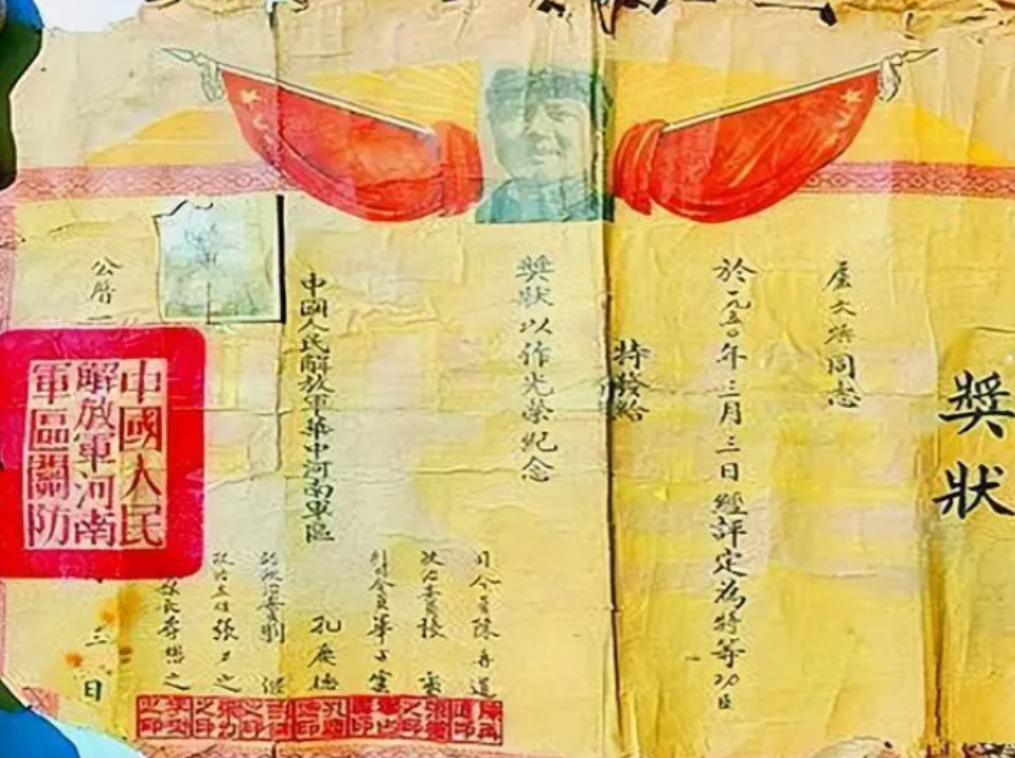 獎狀
文英同志
於一九五〇年三月三日經評定為特等功臣
特發給
獎狀以作光榮紀念
司令員陳再道
政治委員張璽
副司令員畢占雲
孔慶德
中國人民解放軍華中河南軍區
副政治委員劉
政治主任張力之
參謀長李懋之
公曆一
三日
中國人民
解放軍河南
軍區關防